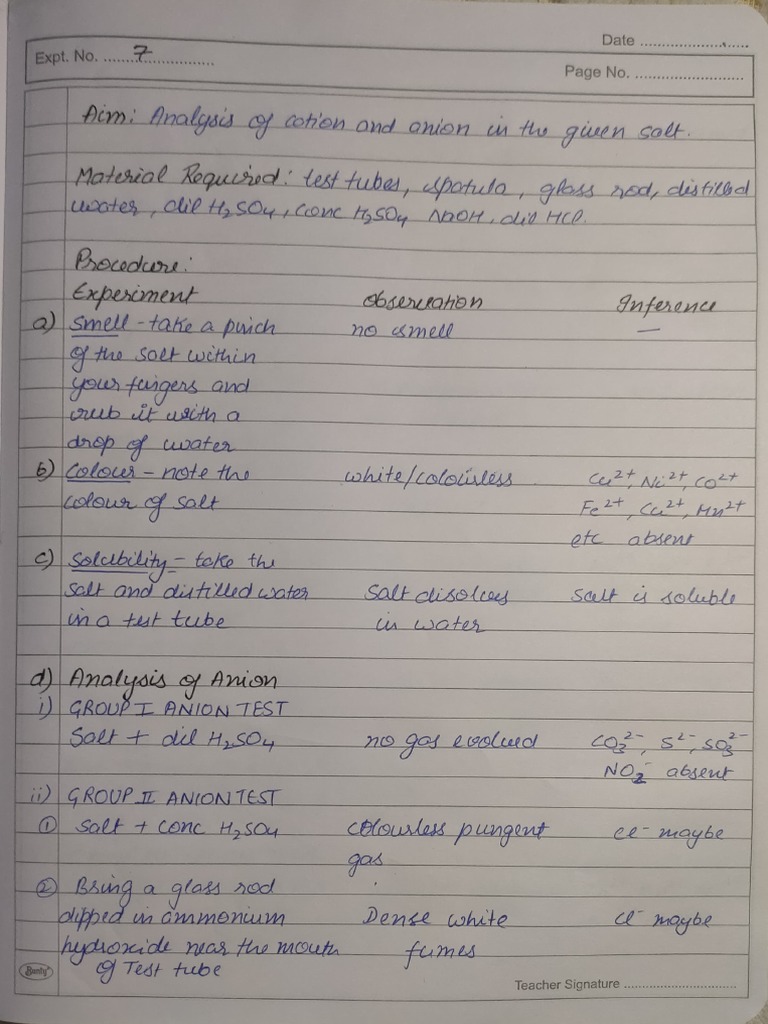 Date ....................
Expt. No. ........7..............
Page No. ....................
Aim: Analysis of cation and anion in the given salt.
Material Required: test tubes, spatula, glass rod, distilled
water, dil H₂SO₄, conc H₂SO₄ NaOH, dil HCl.
Procedure:
Experiment Observation Inference
a) Smell - take a pinch no smell —
of the salt within
your fingers and
rub it with a
drop of water
b) Colour - note the white/colourless Cu²⁺, Ni²⁺, Co²⁺
colour of salt Fe²⁺, Cu²⁺, Mn²⁺
etc absent
c) Solubility - take the
salt and distilled water Salt disolves salt is soluble
in a test tube in water
d) Analysis of Anion
i) GROUP I ANION TEST
Salt + dil H₂SO₄ no gas evolved CO₃²⁻, S²⁻, SO₃²⁻
NO₂⁻ absent
ii) GROUP II ANION TEST
① Salt + conc H₂SO₄ colourless pungent Cl⁻ maybe
gas
② Bring a glass rod
dipped in ammonium Dense white Cl⁻ maybe
hydroxide near the mouth fumes
of Test tube
Bunty
Teacher Signature ....................